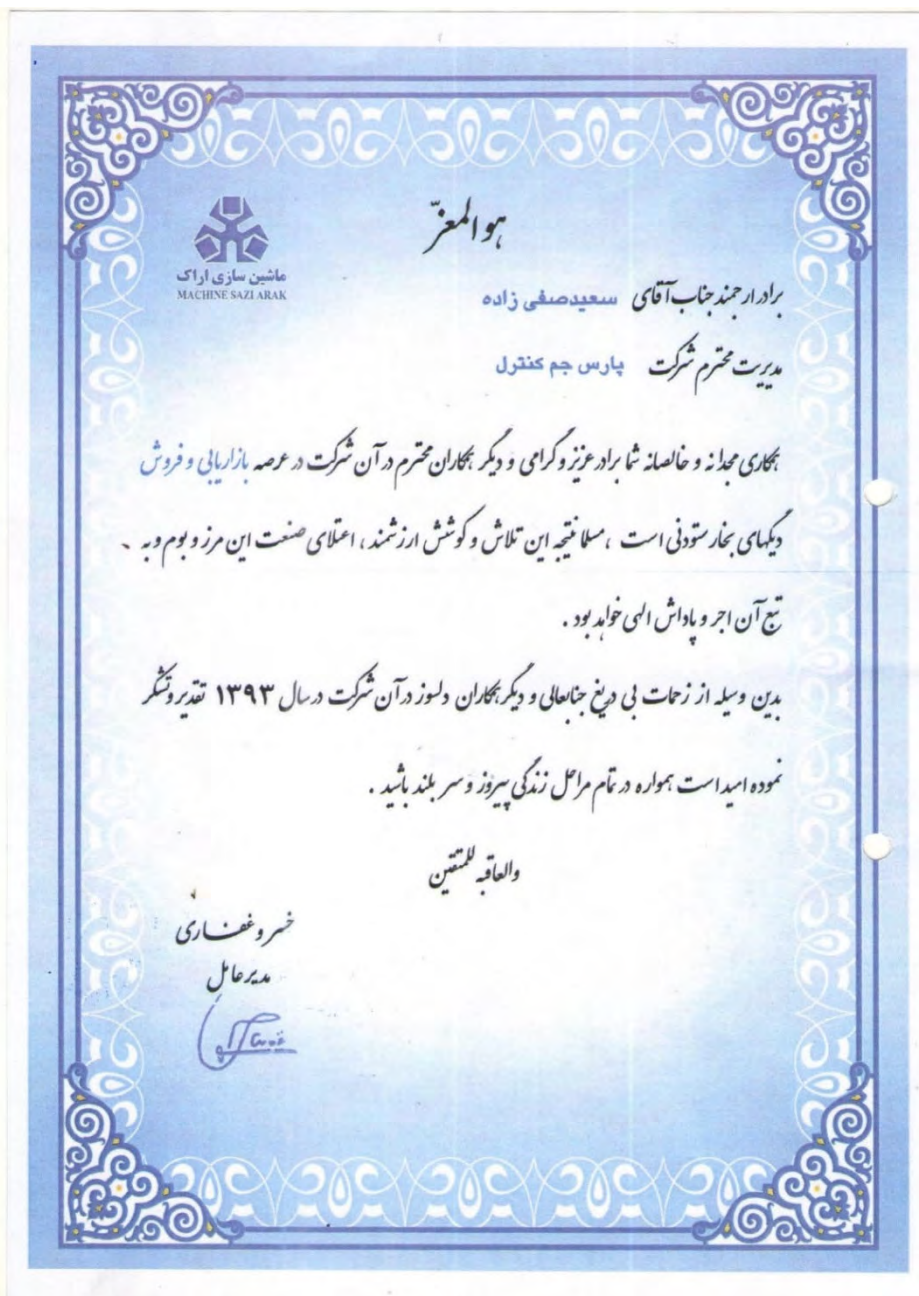 هوالمعزّ
ماشین سازی اراک
MACHINE SAZI ARAK
برادر ارجمند جناب آقای سعیدصفی زاده
مدیریت محترم شرکت پارس جم کنترل
همکاری مجدانه و خالصانه شما برادر عزیز و گرامی و دیگر همکاران محترم در آن شرکت در عرصه بازاریابی و فروش
دیگهای بخار ستودنی است ، مسلما نتیجه این تلاش و کوشش ارزشمند ، اعتلای صنعت این مرز و بوم و به
تبع آن اجر و پاداش الهی خواهد بود .
بدین وسیله از زحمات بی دریغ جنابعالی و دیگر همکاران دلسوز در آن شرکت در سال ۱۳۹۳ تقدیر و تشکر
نموده امید است همواره در تمام مراحل زندگی پیروز و سر بلند باشید .
والعاقبه للمتقین
خسرو غفاری
مدیرعامل